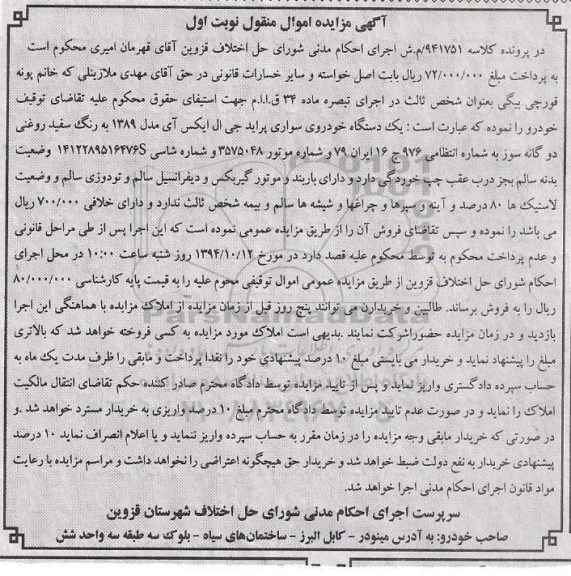 آگهی مزایده اموال منقول نوبت اول
در پرونده کلاسه ۹۴۱۷۵۱/م.ش اجرای احکام مدنی شورای حل اختلاف قزوین آقای قهرمان امیری محکوم است
به پرداخت مبلغ ۷۲/۰۰۰/۰۰۰ ریال بابت اصل خواسته و سایر خسارات قانونی در حق آقای مهدی ملازینلی که خانم پونه
قورچی بیگی بعنوان شخص ثالث در اجرای تبصره ماده ۳۴ ق.ا.ا.م جهت استیفای حقوق محکوم علیه تقاضای توقیف
خودرو را نموده که عبارت است : یک دستگاه خودروی سواری پراید جی ال ایکس آی مدل ۱۳۸۹ به رنگ سفید روغنی
دو گانه سوز به شماره انتظامی ۹۷۶ ج ۱۶ ایران ۷۹ و شماره موتور ۳۵۷۵۰۴۸ و شماره شاسی S۱۴۱۲۲۸۹۵۱۶۴۷۶ وضعیت
بدنه سالم بجز درب عقب چپ خوردگی دارد و دارای باربند و موتور گیربکس و دیفرانسیل سالم و تودوزی سالم و وضعیت
لاستیک ها ۸۰ درصد و آینه و سپرها و چراغها و شیشه ها سالم و بیمه شخص ثالث ندارد و دارای خلافی ۷۰۰/۰۰۰ ریال
می باشد را نموده و سپس تقاضای فروش آن را از طریق مزایده عمومی نموده است که این اجرا پس از طی مراحل قانونی
و عدم پرداخت محکوم به توسط محکوم علیه قصد دارد در مورخ ۱۳۹۴/۱۰/۱۲ روز شنبه ساعت ۱۰:۰۰ در محل اجرای
احکام شورای حل اختلاف قزوین از طریق مزایده عمومی اموال توقیفی محوم علیه را به قیمت پایه کارشناسی ۸۰/۰۰۰/۰۰۰
ریال را به فروش برساند. طالبین و خریدارن می توانند پنج روز قبل از زمان مزایده از املاک مزایده با هماهنگی این اجرا
بازدید و در زمان مزایده حضوراشرکت نمایند .بدیهی است املاک مورد مزایده به کسی فروخته خواهد شد که بالاتری
مبلغ را پیشنهاد نماید و خریدار می بایستی مبلغ ۱۰ درصد پیشنهادی خود را نقدا پرداخت و مابقی را ظرف مدت یک ماه به
حساب سپرده دادگستری واریز نماید و پس از تایید مزایده توسط دادگاه محترم صادر کننده حکم تقاضای انتقال مالکیت
املاک را نماید و در صورت عدم تایید مزایده توسط دادگاه محترم مبلغ ۱۰ درصد واریزی به خریدار مسترد خواهد شد .و
در صورتی که خریدار مابقی وجه مزایده را در زمان مقرر به حساب سپرده واریز ننماید و یا اعلام انصراف نماید ۱۰ درصد
پیشنهادی خریدار به نفع دولت ضبط خواهد شد و خریدار حق هیچگونه اعتراضی را نخواهد داشت و مراسم مزایده با رعایت
مواد قانون اجرای احکام مدنی اجرا خواهد شد.
سرپرست اجرای احکام مدنی شورای حل اختلاف شهرستان قزوین
صاحب خودرو: به آدرس مینودر - کابل البرز - ساختمان‌های سپاه - بلوک سه طبقه سه واحد شش